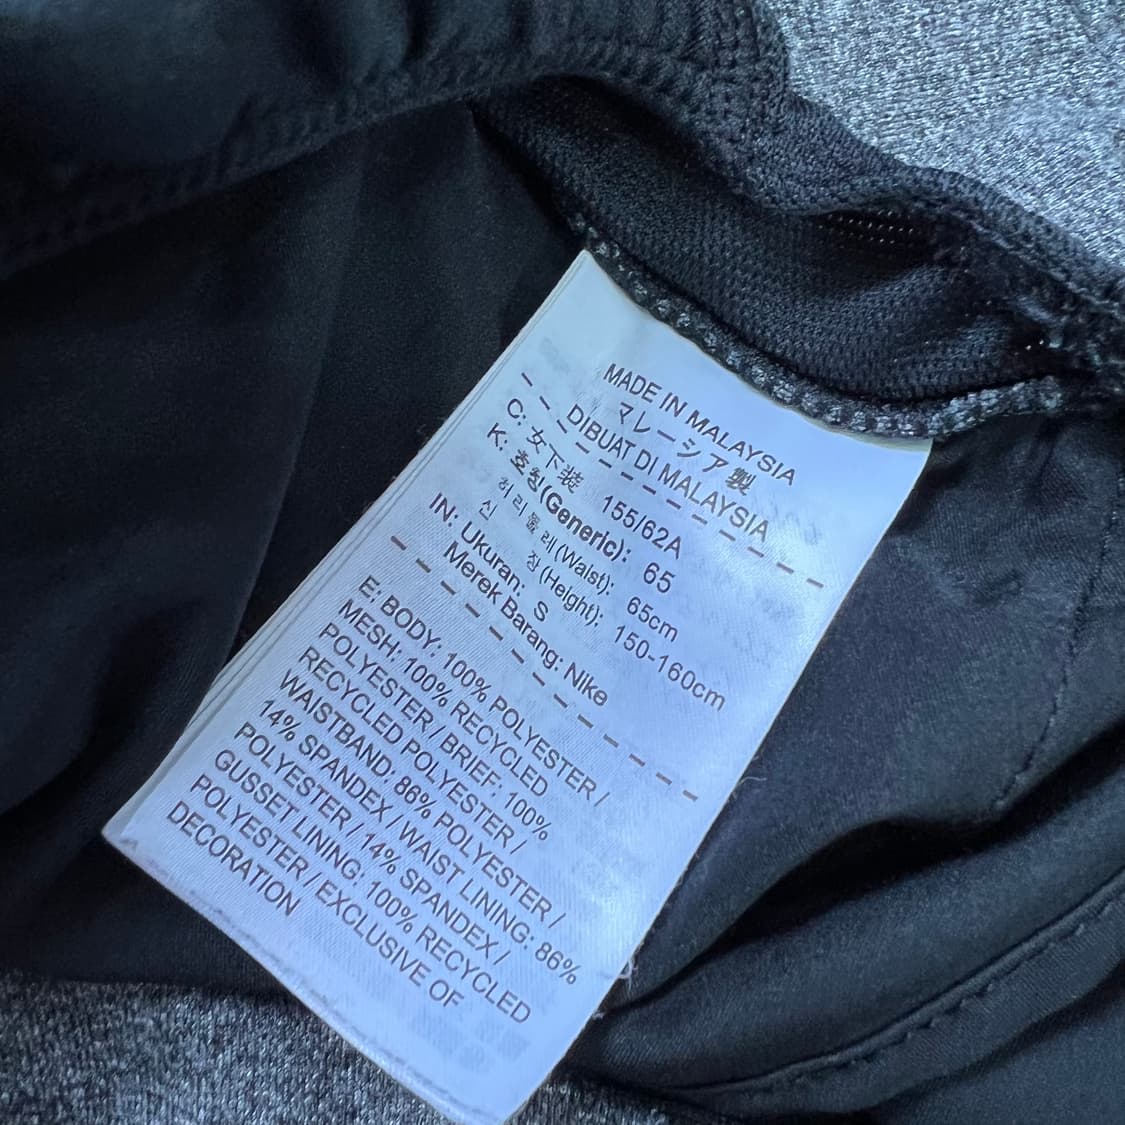 MADE IN MALAYSIA
マレーシア製
DIBUAT DI MALAYSIA
C: 女下装 155/62A
K: 호칭(Generic): 65
허리둘레(Waist): 65cm
신 장(Height): 150-160cm
IN: Ukuran: S
Merek Barang: Nike
E: BODY: 100% POLYESTER /
MESH: 100% RECYCLED
POLYESTER / BRIEF: 100%
RECYCLED POLYESTER /
WAISTBAND: 86% POLYESTER /
14% SPANDEX / WAIST LINING: 86%
POLYESTER / 14% SPANDEX /
GUSSET LINING: 100% RECYCLED
POLYESTER / EXCLUSIVE OF
DECORATION